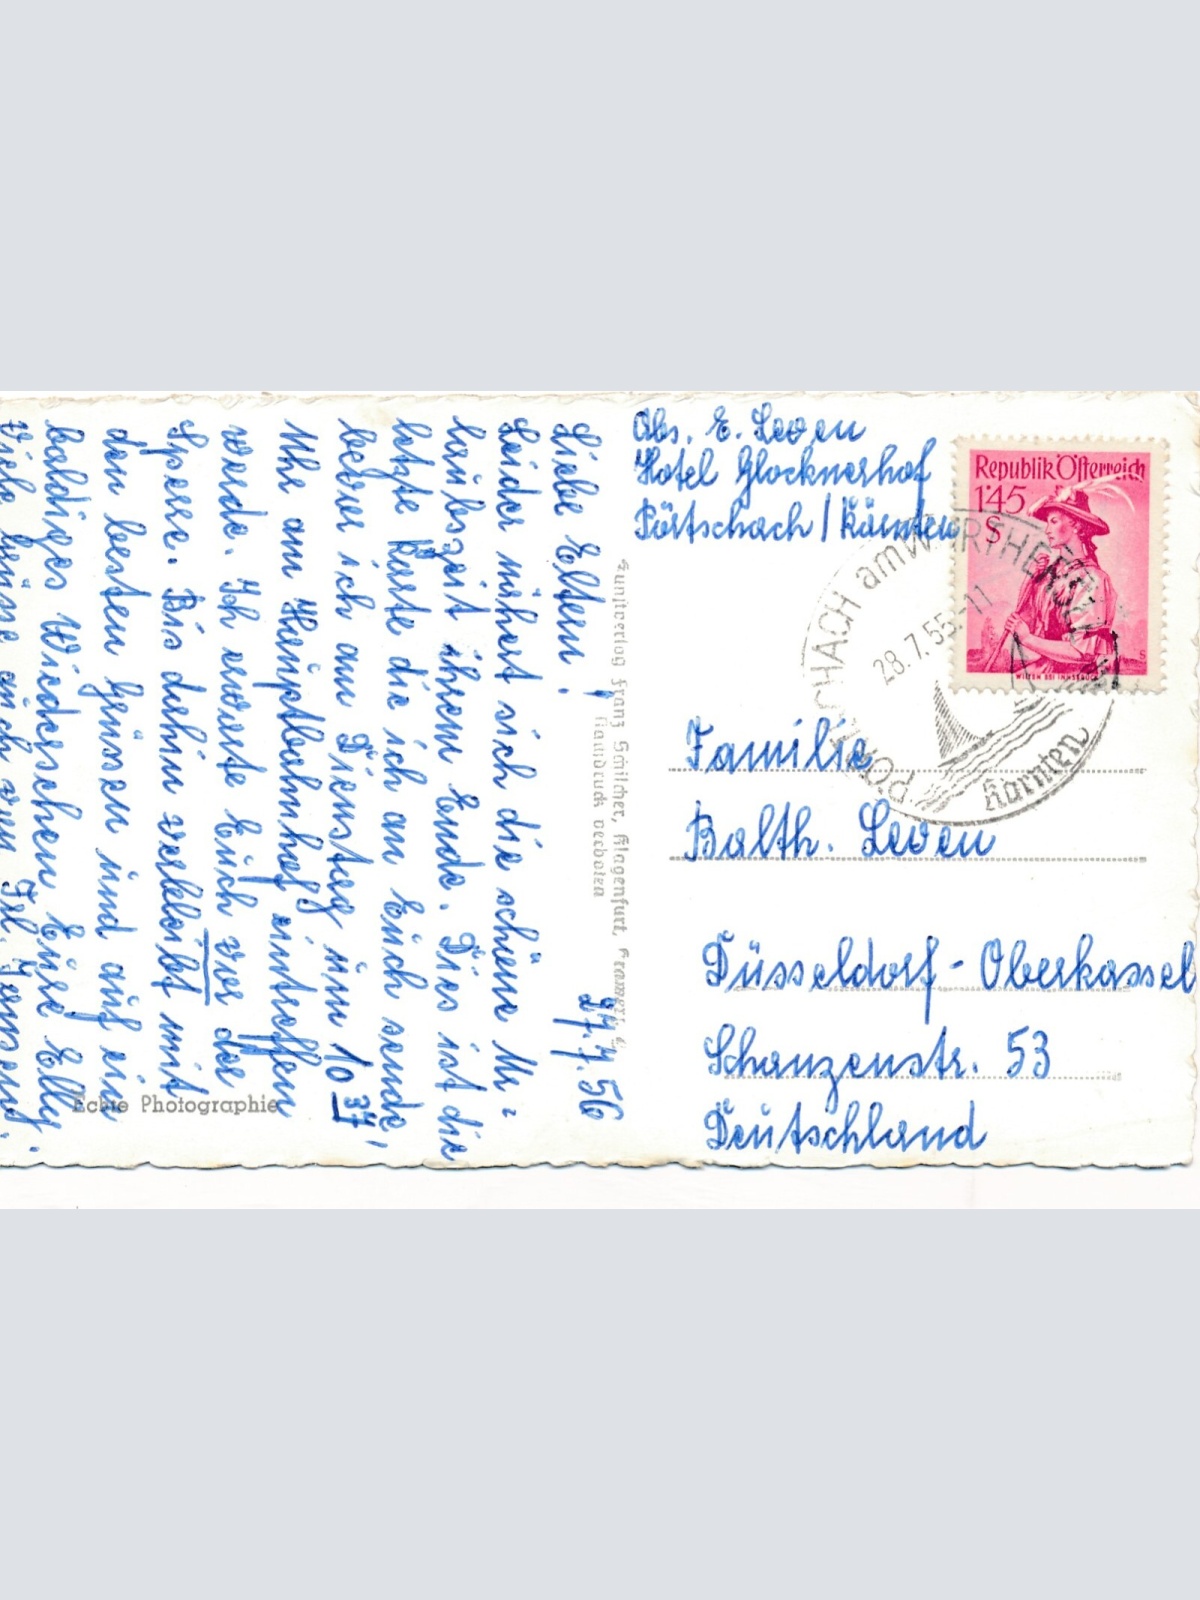 27.7.56
Liebe Eltern!
Leider nähert sich die schöne Ur-
laubszeit ihrem Ende. Dies ist die
letzte Karte die ich an Euch sende,
bevor ich am Dienstag üm 10 37
Uhr am Haüptbahnhof eintreffen
werde. Ich erwarte Eüch vor der
Sperre. Bis dahin verbleibt mit
den besten Grüssen ünd auf ein
baldiges Wiedersehen Eüre Elly.
Viele Grüsse aüch von Frl. Janssen.
Echte Photographie
Kunstverlag Franz Schilcher, Klagenfurt,
Nachdruck verboten
Abs. E. Leven
Hotel Glocknerhof
Pörtschach / Kärnten
Republik Österreich
1'45
S
WILTEN BEI INNSBRUCK
PÖRTSCHACH am WÖRTHERSEE
28.7.55-11
Kärnten
Familie
Balth. Leven
Düsseldorf - Oberkassel
Schanzenstr. 53
Deütschland